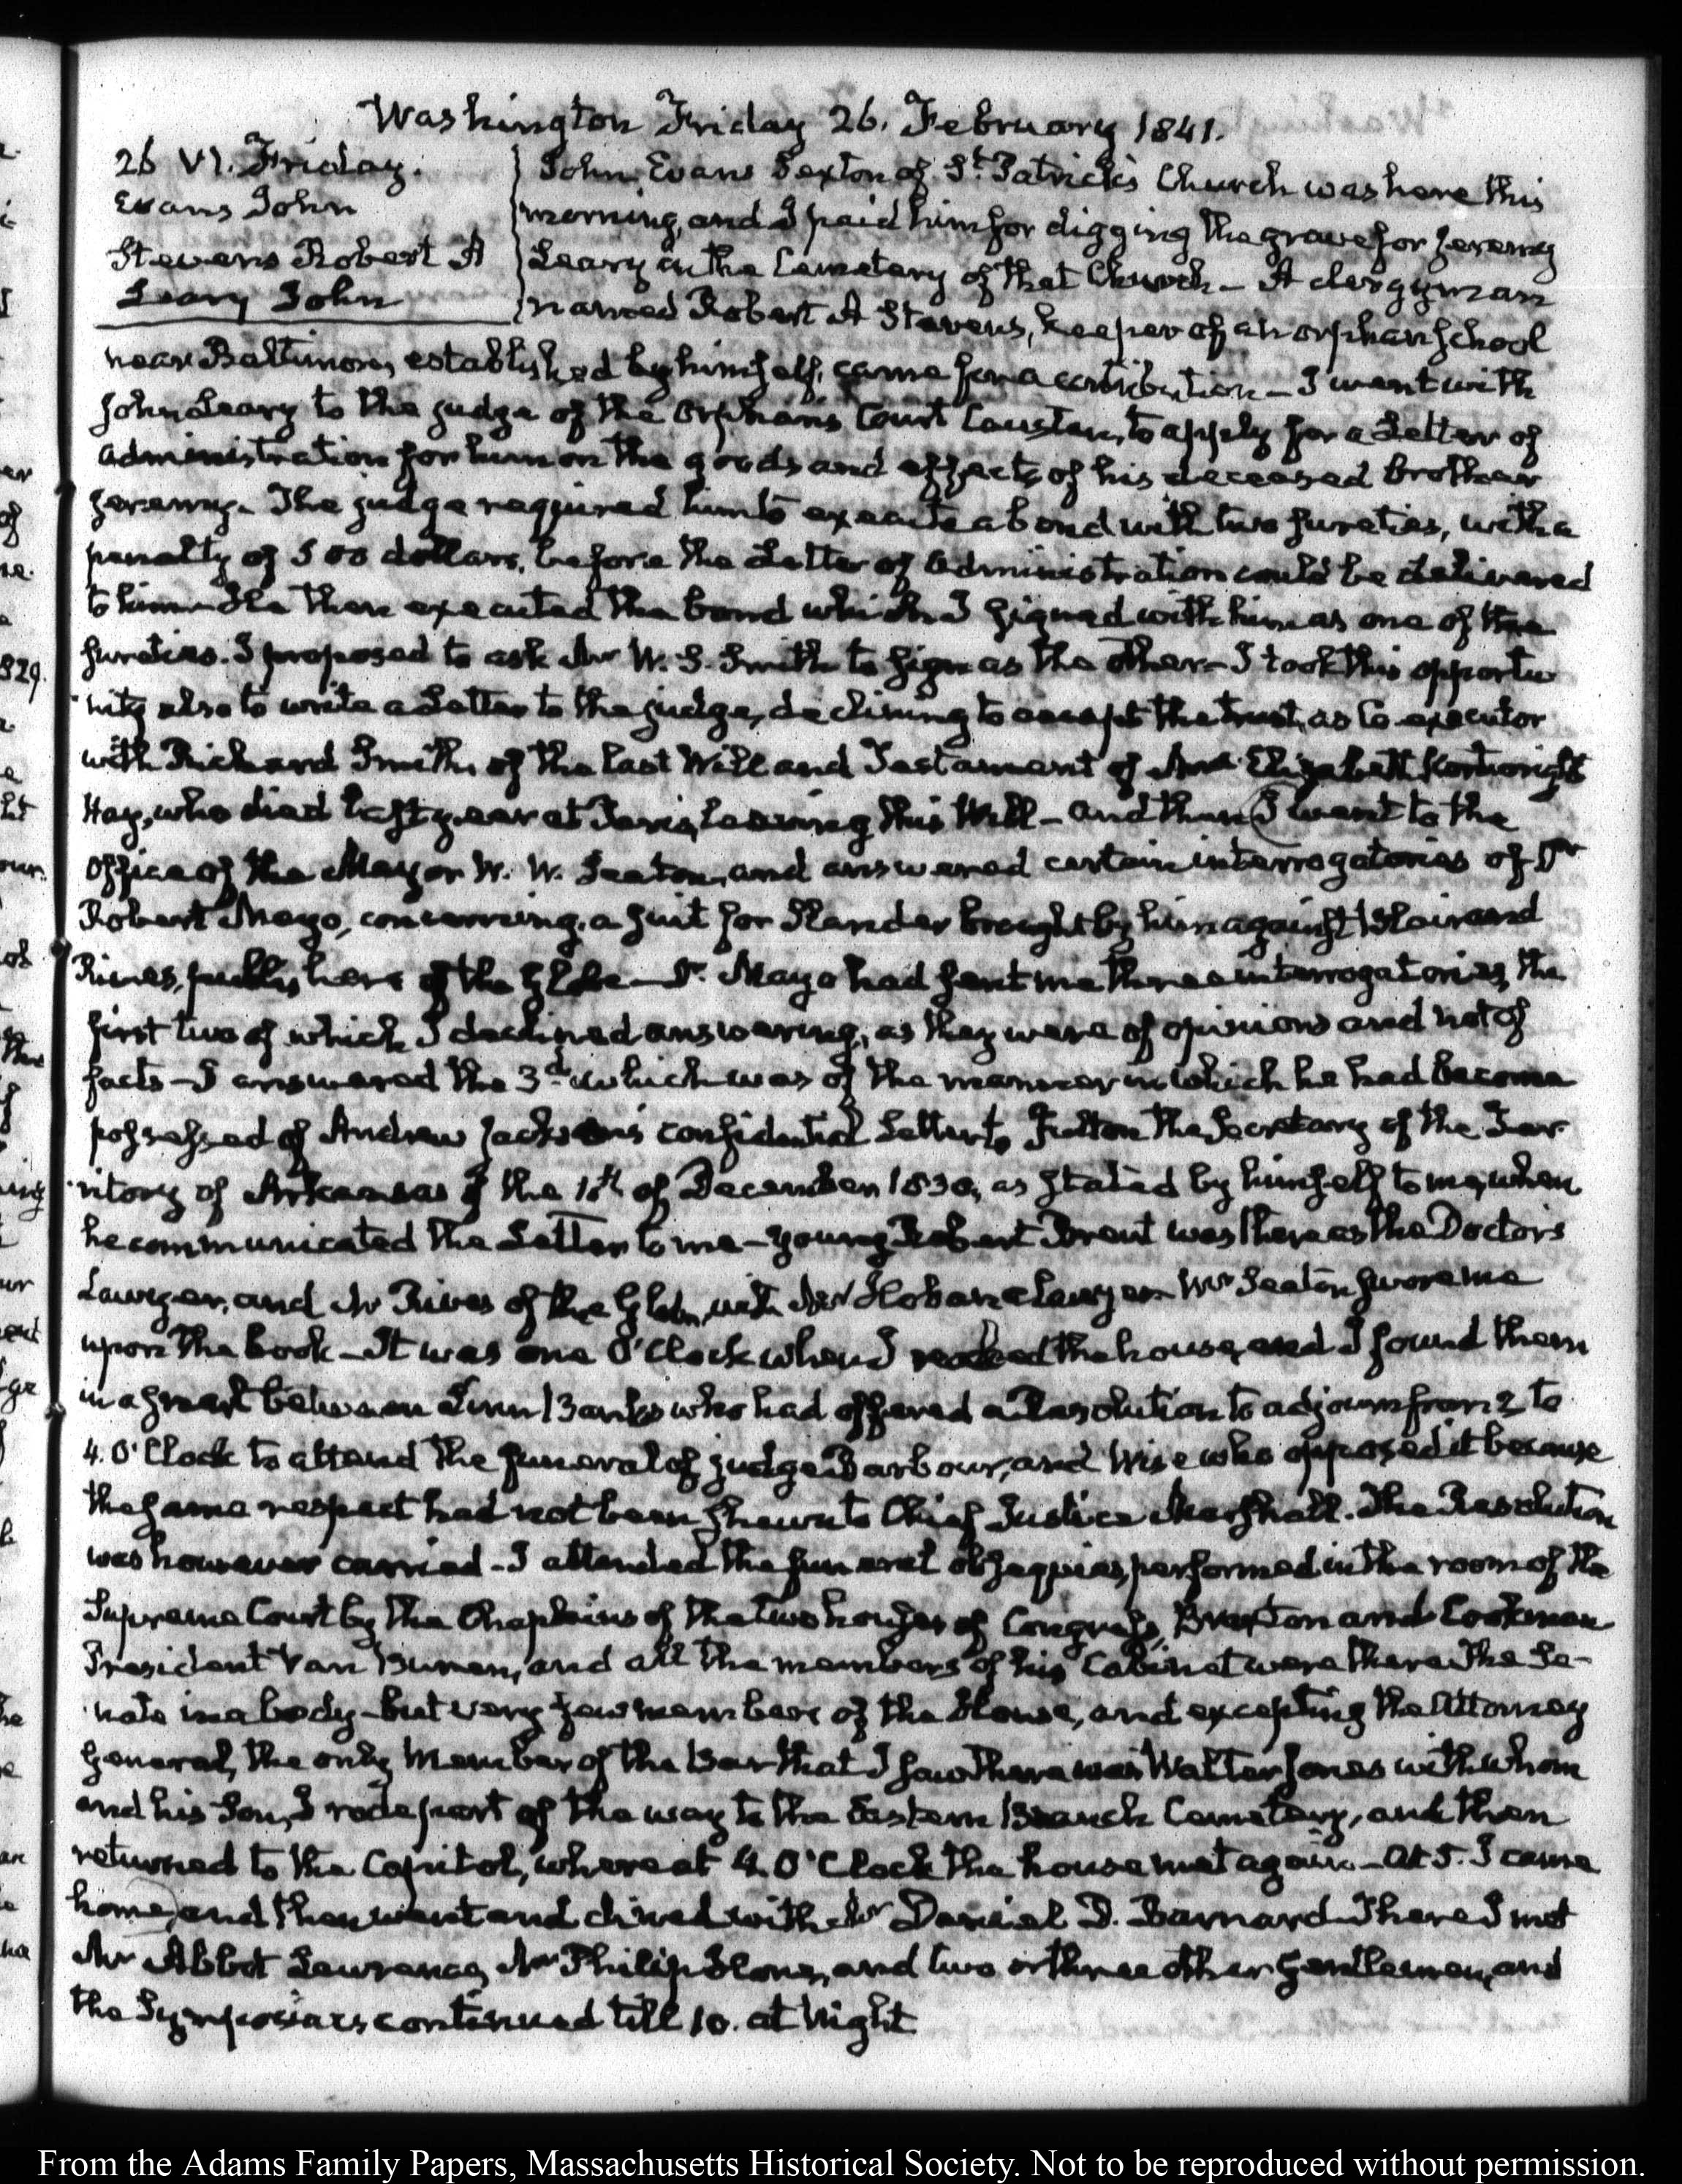 Washington Friday 26. February 1841.
26 VI. Friday.
Evans John
Stevens Robert A
Leary John
John Evans Sexton of St. Patrick's Church was here this
morning, and I paid him for digging the grave for Jeremy
Leary in the Cemetery of that Church – A clergyman
named Robert A Stevens, keeper of an orphan school
near Baltimore, established by himself, came for a contribution – I went with
John Leary to the judge of the Orphans Court Causten, to apply for a Letter of
administration for him on the goods and effects of his deceased brother
Jeremy. The judge required him to execute a bond with two sureties, with a
penalty of 500 dollars, before the Letter of Administration could be delivered
to him – He then executed the bond which I signed with him as one of the
sureties. I proposed to ask Mr W. S. Smith to sign as the other – I took this opportu
nity also to write a Letter to the judge, declining to accept the trust, as Co-executor
with Richard Smith, of the last Will and Testament of Mrs Elizabeth Kortright
Hay, who died last year at Paris, leaving this Will – and then I went to the
office of the Mayor W. W. Seaton, and answered certain interrogatories of Dr
Robert Mayo, concerning a suit for Slander brought by him against Blair and
Rives, publishers of the Globe – Dr. Mayo had sent me three interrogatories, the
first two of which I declined answering, as they were of opinions and not of
facts – I answered the 3d. which was of the manner in which he had become
possessed of Andrew Jackson's confidential Letter to Fulton the Secretary of the Ter-
ritory of Arkansas of the 10th of December 1830, as stated by himself to me, when
he communicated the Letter to me – young Robert Brent was there as the Doctors
Lawyer, and Mr Rives of the Globe, with Mr Hoban a Lawyer – Mr Seaton swore me
upon the book – It was one O'Clock when I reached the house, and I found them
in a snarl between Linn Banks who had offered a Resolution to adjourn from 2 to
4. O'Clock to attend the funeral of judge Barbour, and Wise who opposed it because
the same respect had not been shewn to Chief Justice Marshall. The Resolution
was however carried – I attended the funeral obsequies, performed in the room of the
Supreme Court by the Chaplains of the two houses of Congress, Braxton and Cookman
President Van Buren, and all the members of his Cabinet were there The Se-
nate in a body – but very few members of the House, and excepting the Attorney
General, the only Member of the Bar that I saw there was Walter Jones with whom
and his Son, I rode part of the way to the Eastern Branch Cemetery, and then
returned to the Capitol, where at 4. O'Clock the house met again – At 5. I came
home, and then went and dined with Mr Daniel D. Barnard There I met
Mr Abbot Lawrence, Mr Philip Hone, and two or three other Gentlemen, and
the continued till 10. at Night
From the Adams Family Papers, Massachusetts Historical Society. Not to be reproduced without permission.